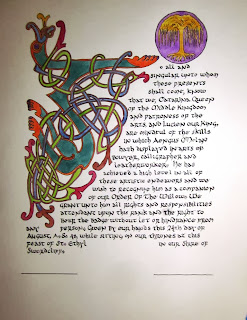 o all and
singular unto whom
these presents
shall come, know
that we, Catarina, Queen
of the Middle Kingdom
and patroness of the
arts, and Lucien our King,
are mindful of the skills
in which Aengus
hath displayed in arts of
Bowyer, Calligrapher and
Leatherworker. He has
achieved a high level in all of
these artistic endeavors and we
wish to recognize him as a companion
of our Order Of The Willow. We
grant unto him all rights and responsibilities
attendant upon this rank and the right to
bear the badge without let or hindrance from
any person. Given by our hands this 24th day of
August, A.S. 48, while sitting on our thrones at the
feast of St. Ethyl in our Shire of
Swordcliff.